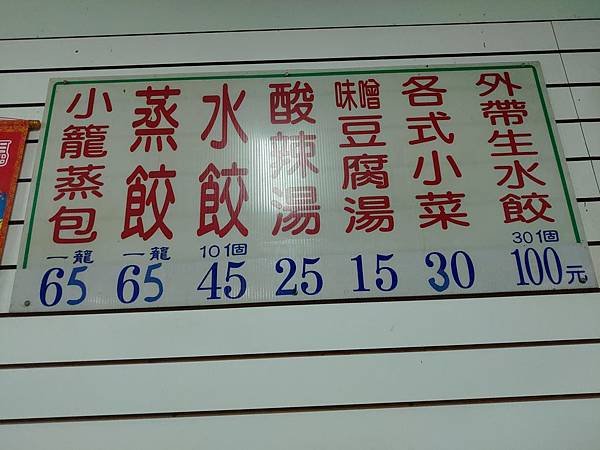 小籠蒸包
一籠
65
蒸餃
一籠
65
水餃
10個
45
酸辣湯
25
味噌豆腐湯
15
各式小菜
30
外帶生水餃
30個
100元